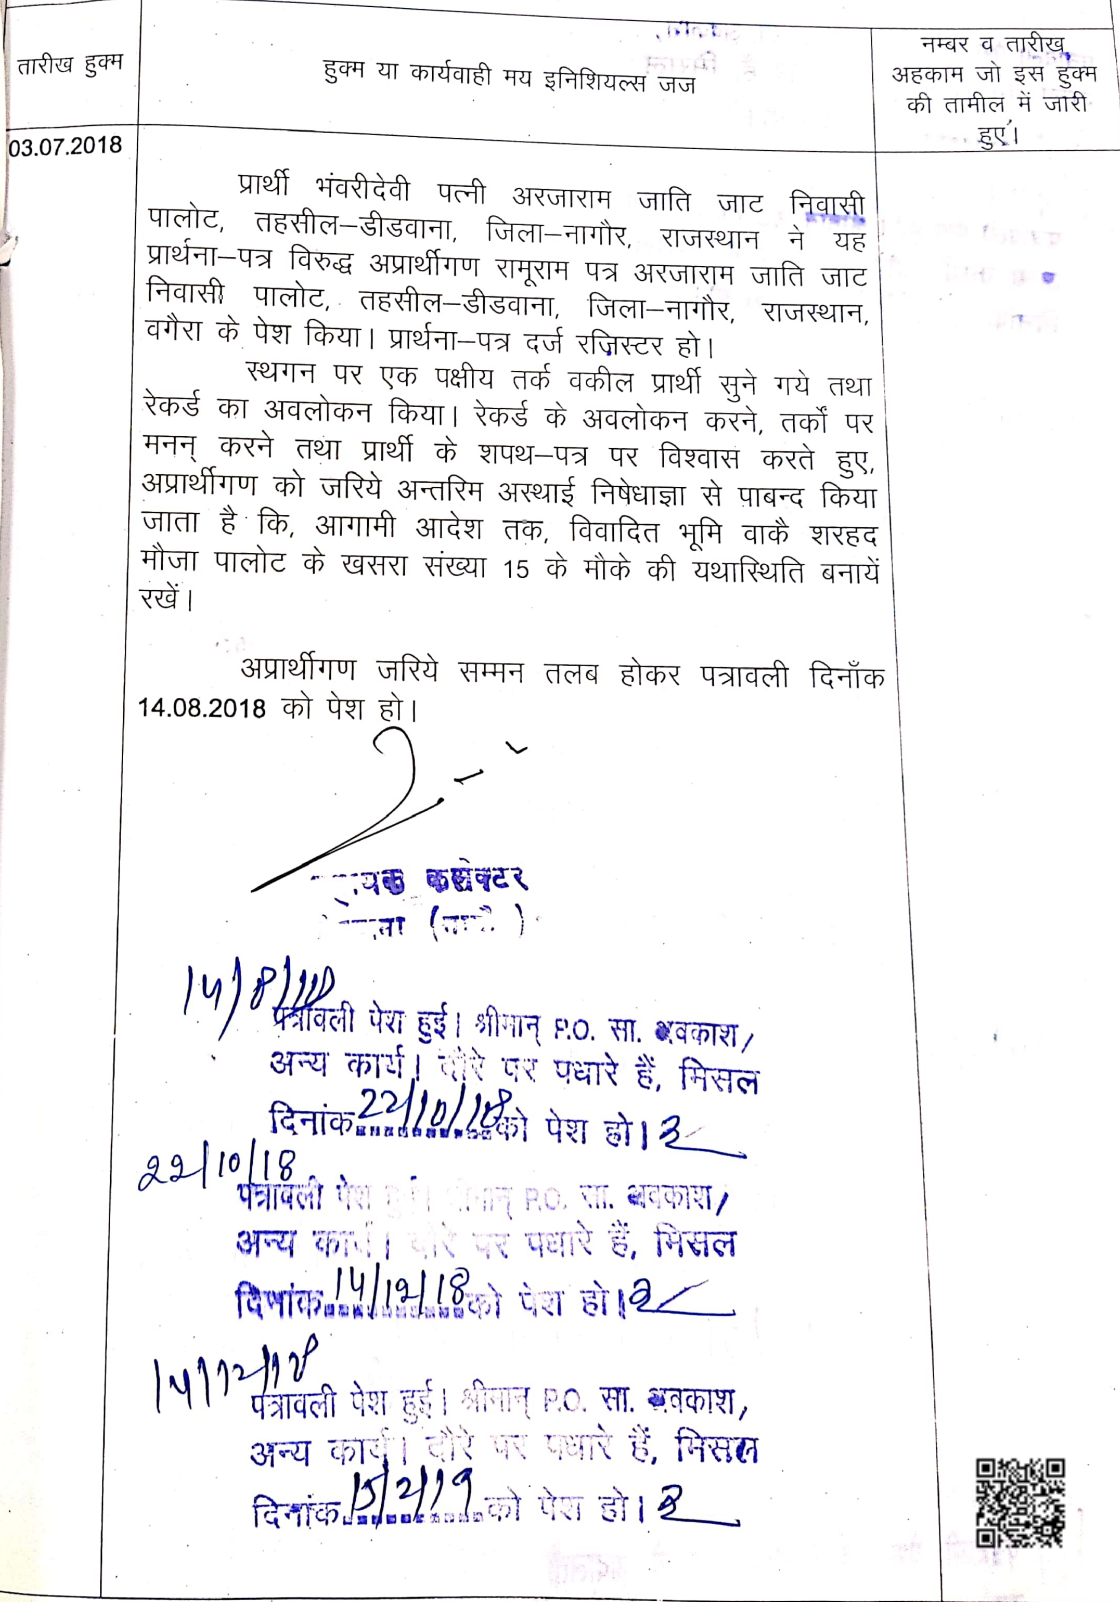 तारीख हुक्म
हुक्म या कार्यवाही मय इनिशियल्स जज
नम्बर व तारीख
अहकाम जो इस हुक्म
की तामील में जारी
हुए।
03.07.2018
प्रार्थी भंवरीदेवी पत्नी अरजाराम जाति जाट निवासी
पालोट, तहसील–डीडवाना, जिला–नागौर, राजस्थान ने यह
प्रार्थना–पत्र विरुद्ध अप्रार्थीगण रामूराम पत्र अरजाराम जाति जाट
निवासी पालोट, तहसील–डीडवाना, जिला–नागौर, राजस्थान,
वगैरा के पेश किया। प्रार्थना–पत्र दर्ज रजिस्टर हो।
स्थगन पर एक पक्षीय तर्क वकील प्रार्थी सुने गये तथा
रेकर्ड का अवलोकन किया। रेकर्ड के अवलोकन करने, तर्कों पर
मनन् करने तथा प्रार्थी के शपथ–पत्र पर विश्वास करते हुए,
अप्रार्थीगण को जरिये अन्तरिम अस्थाई निषेधाज्ञा से पाबन्द किया
जाता है कि, आगामी आदेश तक, विवादित भूमि वाकै शरहद
मौजा पालोट के खसरा संख्या 15 के मौके की यथास्थिति बनायें
रखें।
अप्रार्थीगण जरिये सम्मन तलब होकर पत्रावली दिनाँक
14.08.2018 को पेश हो।
कलेक्टर
14/8/18
पत्रावली पेश हुई। श्रीमान् P.O. सा. अवकाश/
अन्य कार्य। दौरे पर पधारे हैं, मिसल
दिनांक 22/10/18 को पेश हो।
22/10/18
पत्रावली पेश हुई। श्रीमान् P.O. सा. अवकाश/
अन्य कार्य। दौरे पर पधारे हैं, मिसल
दिनांक 14/12/18 को पेश हो।
14/12/18
पत्रावली पेश हुई। श्रीमान् P.O. सा. अवकाश,
अन्य कार्य। दौरे पर पधारे हैं, मिसल
दिनांक 15/2/19 को पेश हो।